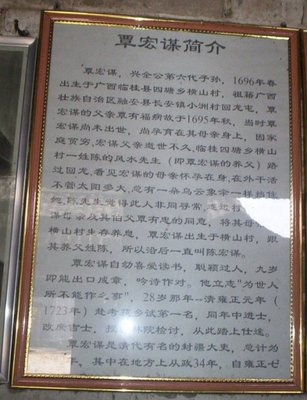 覃宏谋简介
覃宏谋，兴全公第六代子孙，1696年春
出生于广西临桂县四塘乡横山村，祖籍广西
壮族自治区融安县长安镇小洲村回龙屯，覃
宏谋的父亲覃有福病故于1695年秋，当时覃
宏谋尚未出世，尚孕育在其母亲身上，因家
庭贫穷，宏谋父亲逝世不久，临桂四塘乡横山
村一姓陈的风水先生（即覃宏谋的养父）路
过回龙，看见宏谋的母亲怀孕在身，在外干活
不管太阳多大，总有一朵乌云象伞一样挡住
她，陈先生觉得此人非同寻常，
谋母亲及其伯父覃有志的同意，将其母带
横山村生存养息，覃宏谋出生于横山村，跟
其养父姓陈，所以沿后一直叫陈宏谋。
覃宏谋自幼喜爱读书，聪颖过人，九岁
即能出口成章，吟诗作对。他立志“为世人
所不能作之事”，28岁那年—清雍正元年（
1723年）赴考获乡试第一名，同年中进士，
改庶吉士，授 林院检讨，从此踏上仕途。
覃宏谋是清代有名的封疆大吏，总计为
年，其中在地方上从政34年，自雍正七